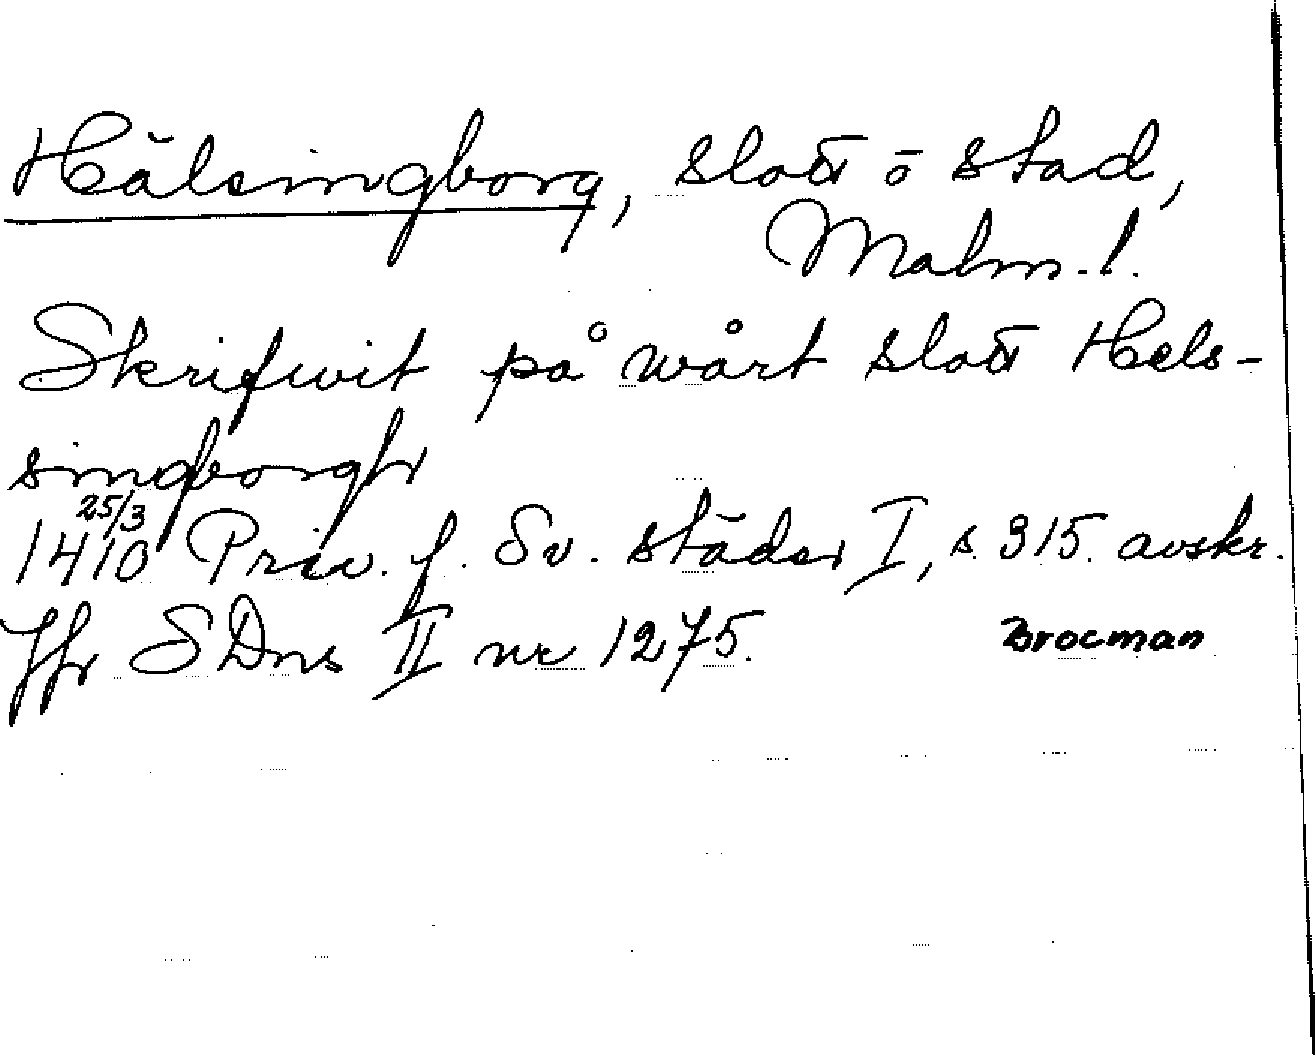 Hälsingborg, slott o stad,
Malm. l.
Skrifwit på wårt slott Hels-
singborgh
25/3
1410 Priv. f. Sv. städer I, s. 315. avskr.
Jfr SDns II nr 1275. Brocman